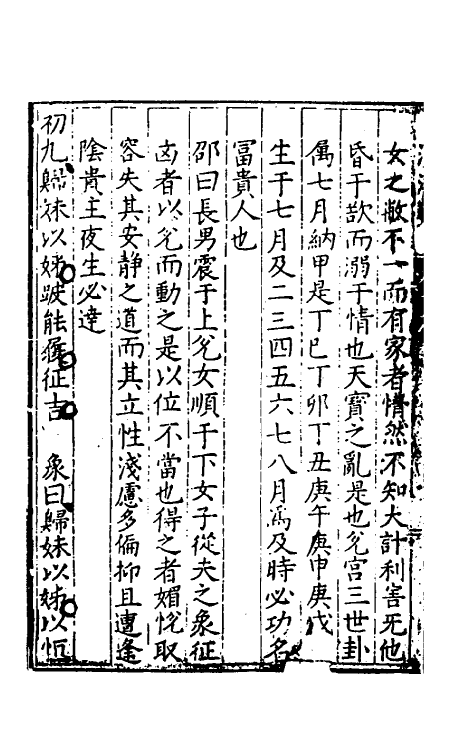 女之敝不一而有家者惛然不知大計利害无他
昏于歆而溺于情也天寶之亂是也兊宫三世卦
属七月納甲是丁巳丁卯丁丑庚午庚申庚戌
生于七月及二三四五六七八月爲及時必功名
冨貴人也
邵曰長男震于上兊女順于下女子從夫之象征
凶者以兊而動之是以位不當也得之者媚悅取
容失其安静之道而其立性淺慮多偏抑且遭逢
陰貴主夜生必達
初九歸妹以娣跛能履征吉 象曰歸妹以娣以恒